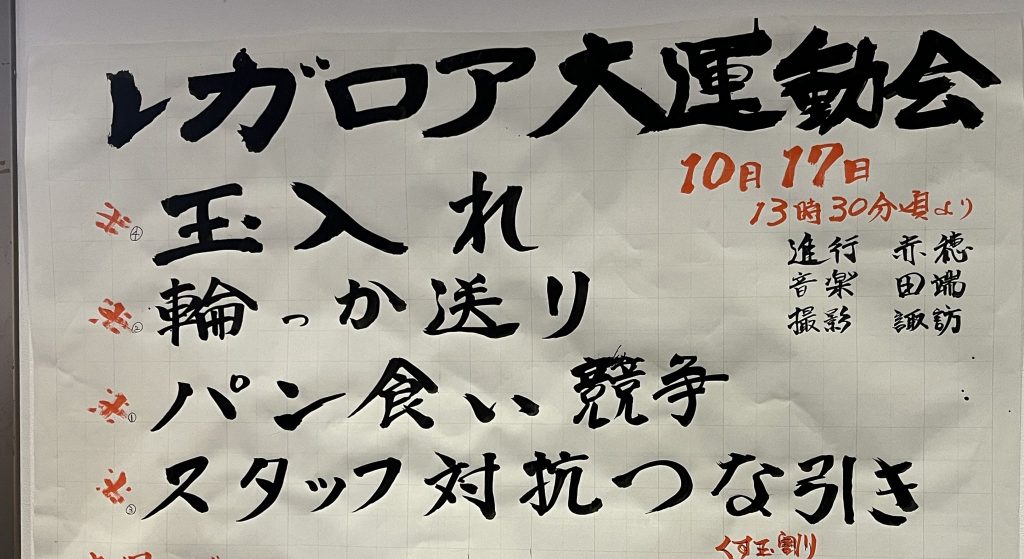 レガロア大運動会
10月17日
13時30分頃より
進行 赤穂
音楽 田端
撮影 諏訪
④ 玉入れ
② 輪っか送り
① パン食い競争
③ スタッフ対抗つな引き
くす玉割り